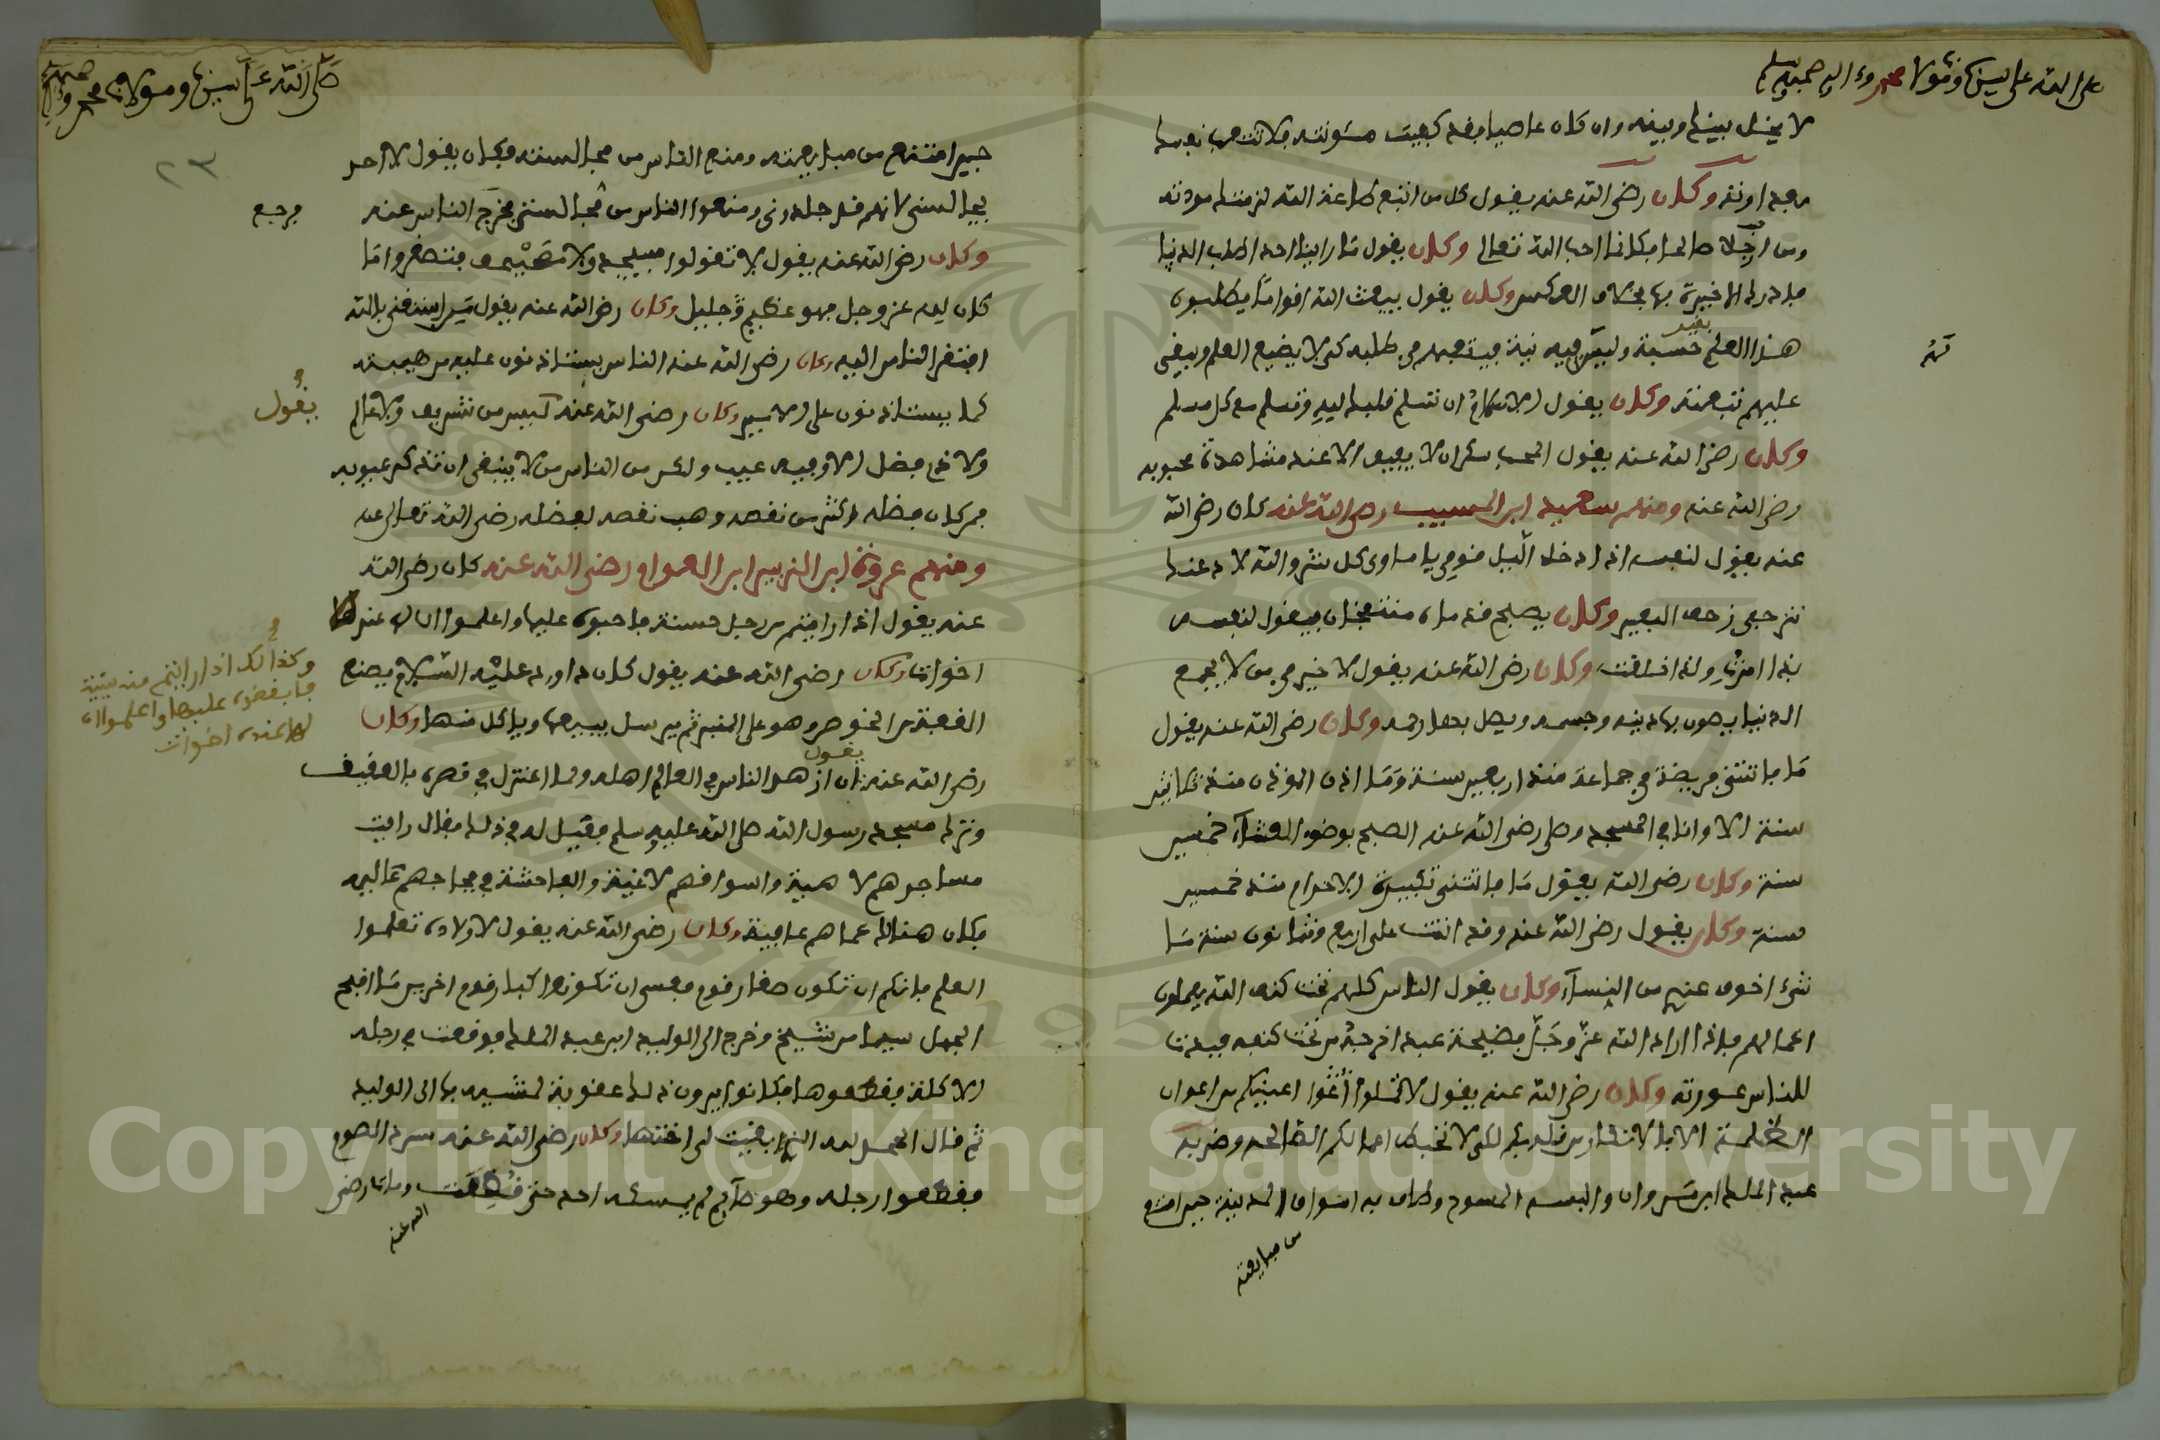 صلى الله على سيدنا ومولانا محمد وءاله وصحبه وسلم
لا يخل بينك وبينه وان كان عاصيا فقد كفيت مئونته فلا تتعب نفسك
بعداوته وكان رضي الله عنه يقول كل من اتبع طاعة الله لزمتك مودته
ومن احب رجلا صالحا فكانما احب الله تعالى وكان يقول ما راينا احدا طلب الدنيا
فادرك الاخرة بها بخلاف العكس وكان يقول يبعث الله اقواما يطلبون
هذا العلم حسبة وليس فيه نية فيبعثهم في طلبه كي لا يضيع العلم ويبقى
عليهم تبعته وكان يقول الاسلام ان تسلم قلبك لله وتسلم منك كل مسلم
وكان رضي الله عنه يقول المحب سكران لا يفيق الا عند مشاهدة محبوبه
رضي الله عنه ومنهم سعيد ابن المسيب رضي الله عنه كان رضي الله
عنه يقول لنفسه اذا دخل الليل قومي يا ماوى كل شر والله لادعنك
تزحفي زحف البعير وكان يصبح قدماه منتفختان فيقول لنفسه
بذا امرت ولذا خلقت وكان رضي الله عنه يقول لا خير في من لا يجمع
الدنيا يصون بها دينه وجسمه ويصل بها رحمه وكان رضي الله عنه يقول
ما فاتتني فريضة في جماعة منذ اربعين سنة وما اذن المؤذن منذ ثلاثين
سنة الا وانا في المسجد وصلى رضي الله عنه الصبح بوضوء العشاء خمسين
سنة وكان رضي الله يقول ما فاتتني تكبيرة الاحرام منذ خمسين
سنة وكان يقول رضي الله عنه وقد اتت على اربع وثمانون سنة ما
شيء اخوف عندي من النساء وكان يقول الناس كلهم تحت كنف الله يعملون
اعمالهم فاذا اراد الله عز وجل فضيحة عبد اخرجه من تحت كنفه فبدت
للناس عورته وكان رضي الله عنه يقول لا تملوا اعينكم من اعوان
الظلمة الا بالانكار من قلوبكم لكي لا تحبط اعمالكم الصالحة وضربه
عبد الملك ابن مروان والبسه المسوح وطاف به اسواق المدينة حين امتنع
من مبايعته
صلى الله على سيدنا ومولانا محمد وءاله وصحبه
٢٣
حين امتنع من مبايعته ومنع الناس من مجالسته فكان يقول لا احد
يجالسني لانهم قد جلدوني ومنعوا الناس من مجالستي فخرج الناس عنه
وكان رضي الله عنه يقول لا تقولوا مسيجد ولا مصيحف فتصغروا ما
كان لله عز وجل فهو عظيم وجليل وكان رضي الله عنه يقول من استغنى بالله
افتقر الناس اليه وكان رضي الله عنه الناس يستاذنون عليه من هيبته
كما يستاذنون على الامير وكان رضي الله عنه ليس من شريف ولا عالم
يقول
ولا ذي فضل الا وفيه عيب ولكن من الناس من لا ينبغي ان تذكر عيوبه
فمن كان فضله اكثر من نقصه وهب نقصه لفضله رضي الله تعالى عنه
ومنهم عروة ابن الزبير ابن العوام رضي الله عنه كان رضي الله
عنه يقول اذا رايتم من رجل حسنة فاحبوه عليها واعلموا ان لها عنده
اخوات وكان رضي الله عنه يقول كان داود عليه السلام يصنع
وكذالك اذا رايتم منه سيئة
فابغضوه عليها واعلموا ان
لها عنده اخوات
القفة من الخوص وهو على المنبر ثم يرسل يبيعها وياكل منها وكان
رضي الله عنه يقول ان ازهد الناس في العالم اهله ولما اعتزل في قصره بالعقيق
وترك مسجد رسول الله صلى الله عليه وسلم فقيل له في ذلك فقال رايت
مساجدهم لاهية واسواقهم لاغية والفاحشة في فجاجهم عالية
فكان هنالك عما هم عافية وكان رضي الله عنه يقول لاولاده تعلموا
العلم فانكم ان تكونوا صغار قوم فعسى ان تكونوا كبار قوم اخرين ما اقبح
الجهل سيما من شيخ وخرج الى الوليد ابن عبد الملك فوقعت في رجله
الاكلة فقطعوها فكانوا يرون ذلك عقوبة لمشيه بها الى الوليد
ثم قال الحمد لله الذي ابقيت لي اختها وكان رضي الله عنه يسرد الصوم
فقطعوا رجله وهو صائم لم يمسكه احد حتى قطعت ومات رضي
الله عنه